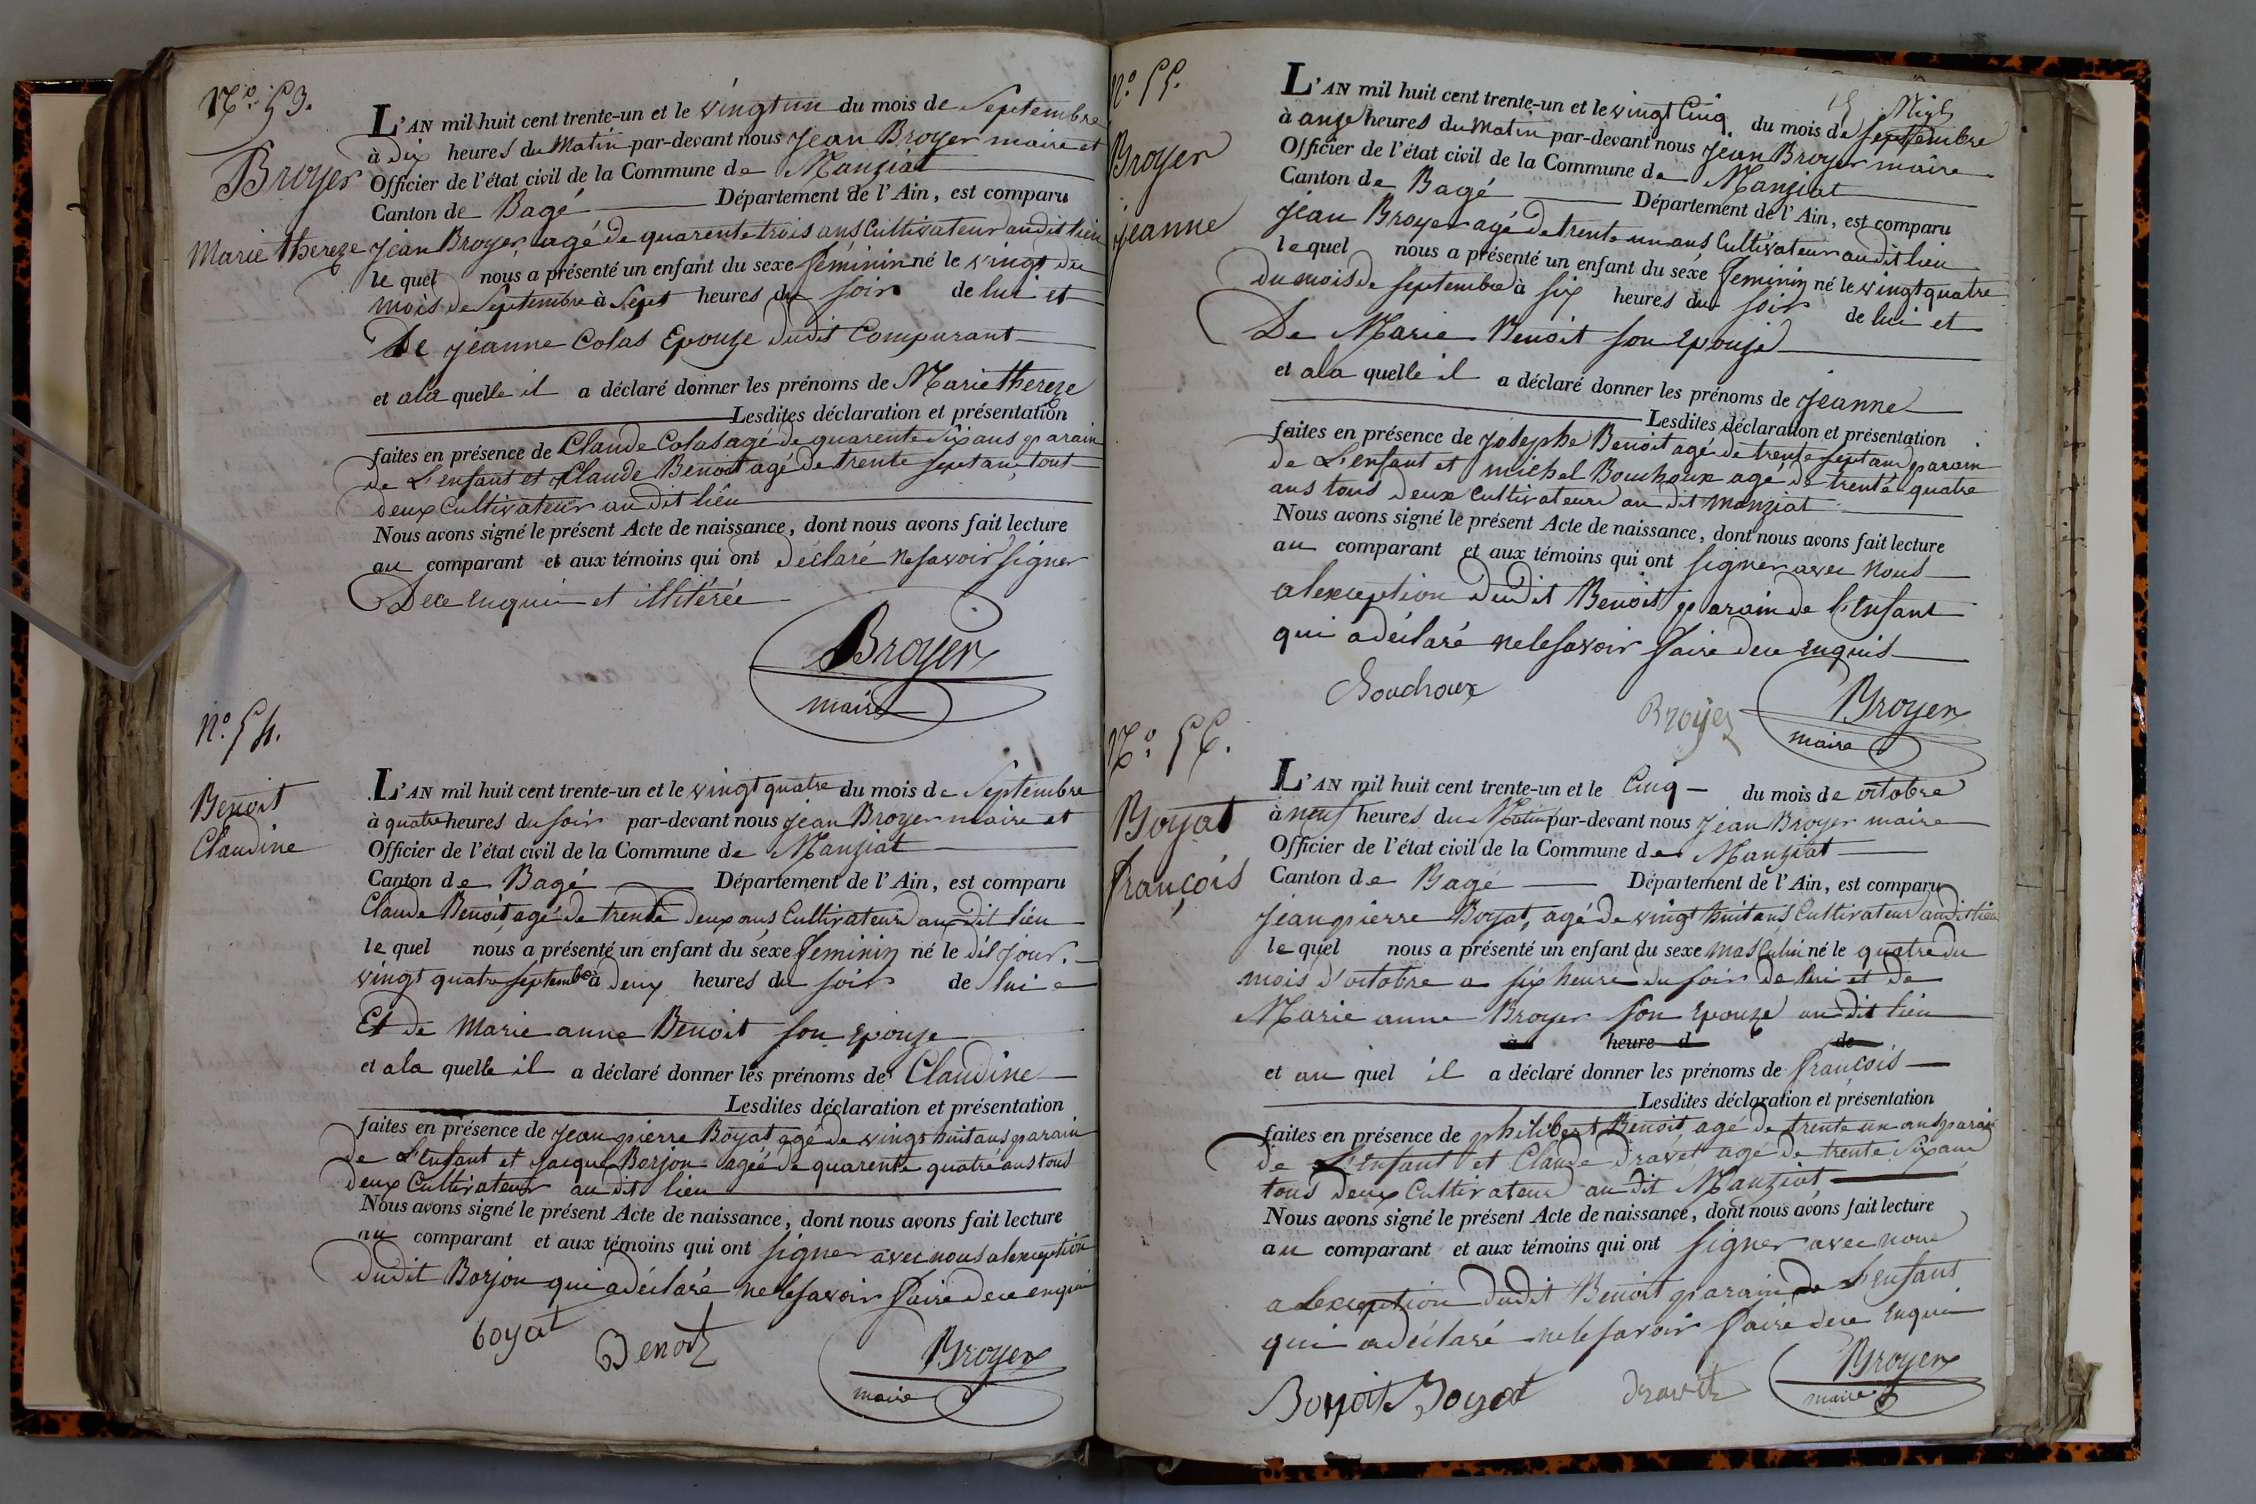 N.º 53.
Broyer
Marie thereze
L'AN mil huit cent trente-un et le vingt un du mois de Septembre
à dix heures du Matin par-devant nous Jean Broyer maire et
Officier de l'état civil de la Commune de Manziat
Canton de Bagé Département de l'Ain, est comparu
Jean Broyer agé de quarente trois ans Cultivateur audit lieu
le quel nous a présenté un enfant du sexe féminin né le vingt du
mois de Septembre à Sept heures du soir de lui et
De jeanne Colas Epouze dudit Comparant
et ala quelle il a déclaré donner les prénoms de Marie thereze
Lesdites déclaration et présentation
faites en présence de Claude Colas agé de quarente Six ans parain
de L'enfant et Claude Benoit agé de trente sept ans tout
deux Cultivateur au dit lieu
Nous avons signé le présent Acte de naissance, dont nous avons fait lecture
au comparant et aux témoins qui ont déclaré ne savoir signer
De ce enquis et illitérée
Broyer
maire
N.º 54.
Benoit
Claudine
L'AN mil huit cent trente-un et le vingt quatre du mois de Septembre
à quatre heures du soir par-devant nous jean Broyer maire et
Officier de l'état civil de la Commune de Manziat
Canton de Bagé Département de l'Ain, est comparu
Claude Benoit, agé de trente deux ans Cultivateur audit lieu
le quel nous a présenté un enfant du sexe feminin né le dit jour.
vingt quatre septembre à deux heures du soir de lui
Et de Marie anne Benoit son epouze
et ala quelle il a déclaré donner les prénoms de Claudine
Lesdites déclaration et présentation
faites en présence de jean pierre Boyat agé de vingt huit ans parain
de L'enfant et jacque Borjon agée de quarente quatre ans tous
deux Cultivateur au dit lieu
Nous avons signé le présent Acte de naissance, dont nous avons fait lecture
au comparant et aux témoins qui ont signer avec nous alexception
dudit Borjon qui a déclaré ne le savoir faire de ce enquis
boyat Benoit
Broyer
maire
N.º 55.
Broyer
jeanne
L'AN mil huit cent trente-un et le vingt Cinq du mois de Septembre
à onze heures du Matin par-devant nous Jean Broyer maire
Officier de l'état civil de la Commune de Manziat
Canton de Bagé Département de l'Ain, est comparu
jean Broyer agé de trente un ans Cultivateur audit lieu
le quel nous a présenté un enfant du séxe feminin né le vingt quatre
du mois de septembre à six heures du soir de lui et
De Marie Benoit son Epouse
et ala quelle il a déclaré donner les prénoms de jeanne
Lesdites déclaration et présentation
faites en présence de Josephe Benoit agé de trente sept ans parain
de L'enfant et michel Bouchoux agé de trente quatre
ans tous deux Cultivateurs au dit manziat
Nous avons signé le présent Acte de naissance, dont nous avons fait lecture
au comparant et aux témoins qui ont signer avec nous
alexception dudit Benoit parain de l'enfant
qui a déclaré ne le savoir faire de ce enquis
Bouchoux
Broyer
Broyer
maire
N.º 56.
Boyat
françois
L'AN mil huit cent trente-un et le Cinq du mois de octobre
à neuf heures du Matin par-devant nous Jean Broyer maire
Officier de l'état civil de la Commune de Manziat
Canton de Bagé Département de l'Ain, est comparu
jean pierre Boyat, agé de vingt huit ans Cultivateur audit lieu
le quel nous a présenté un enfant du sexe masculin né le quatre du
mois d'octobre a six heure du soir de lui et de
Marie anne Broyer son epouze au dit lieu
à heure d de
et au quel il a déclaré donner les prénoms de françois
Lesdites déclaration et présentation
faites en présence de philibert Benoit, agé de trente un ans parain
de L'enfant et Claude dravet agé de trente Six ans
tous deux Cultivateur au dit Manziat
Nous avons signé le présent Acte de naissance, dont nous avons fait lecture
au comparant et aux témoins qui ont signer avec nous
a Lexception dudit Benoit parain de L'enfant
qui a déclaré ne le savoir faire de ce enquis
Boyat
Broyer
maire